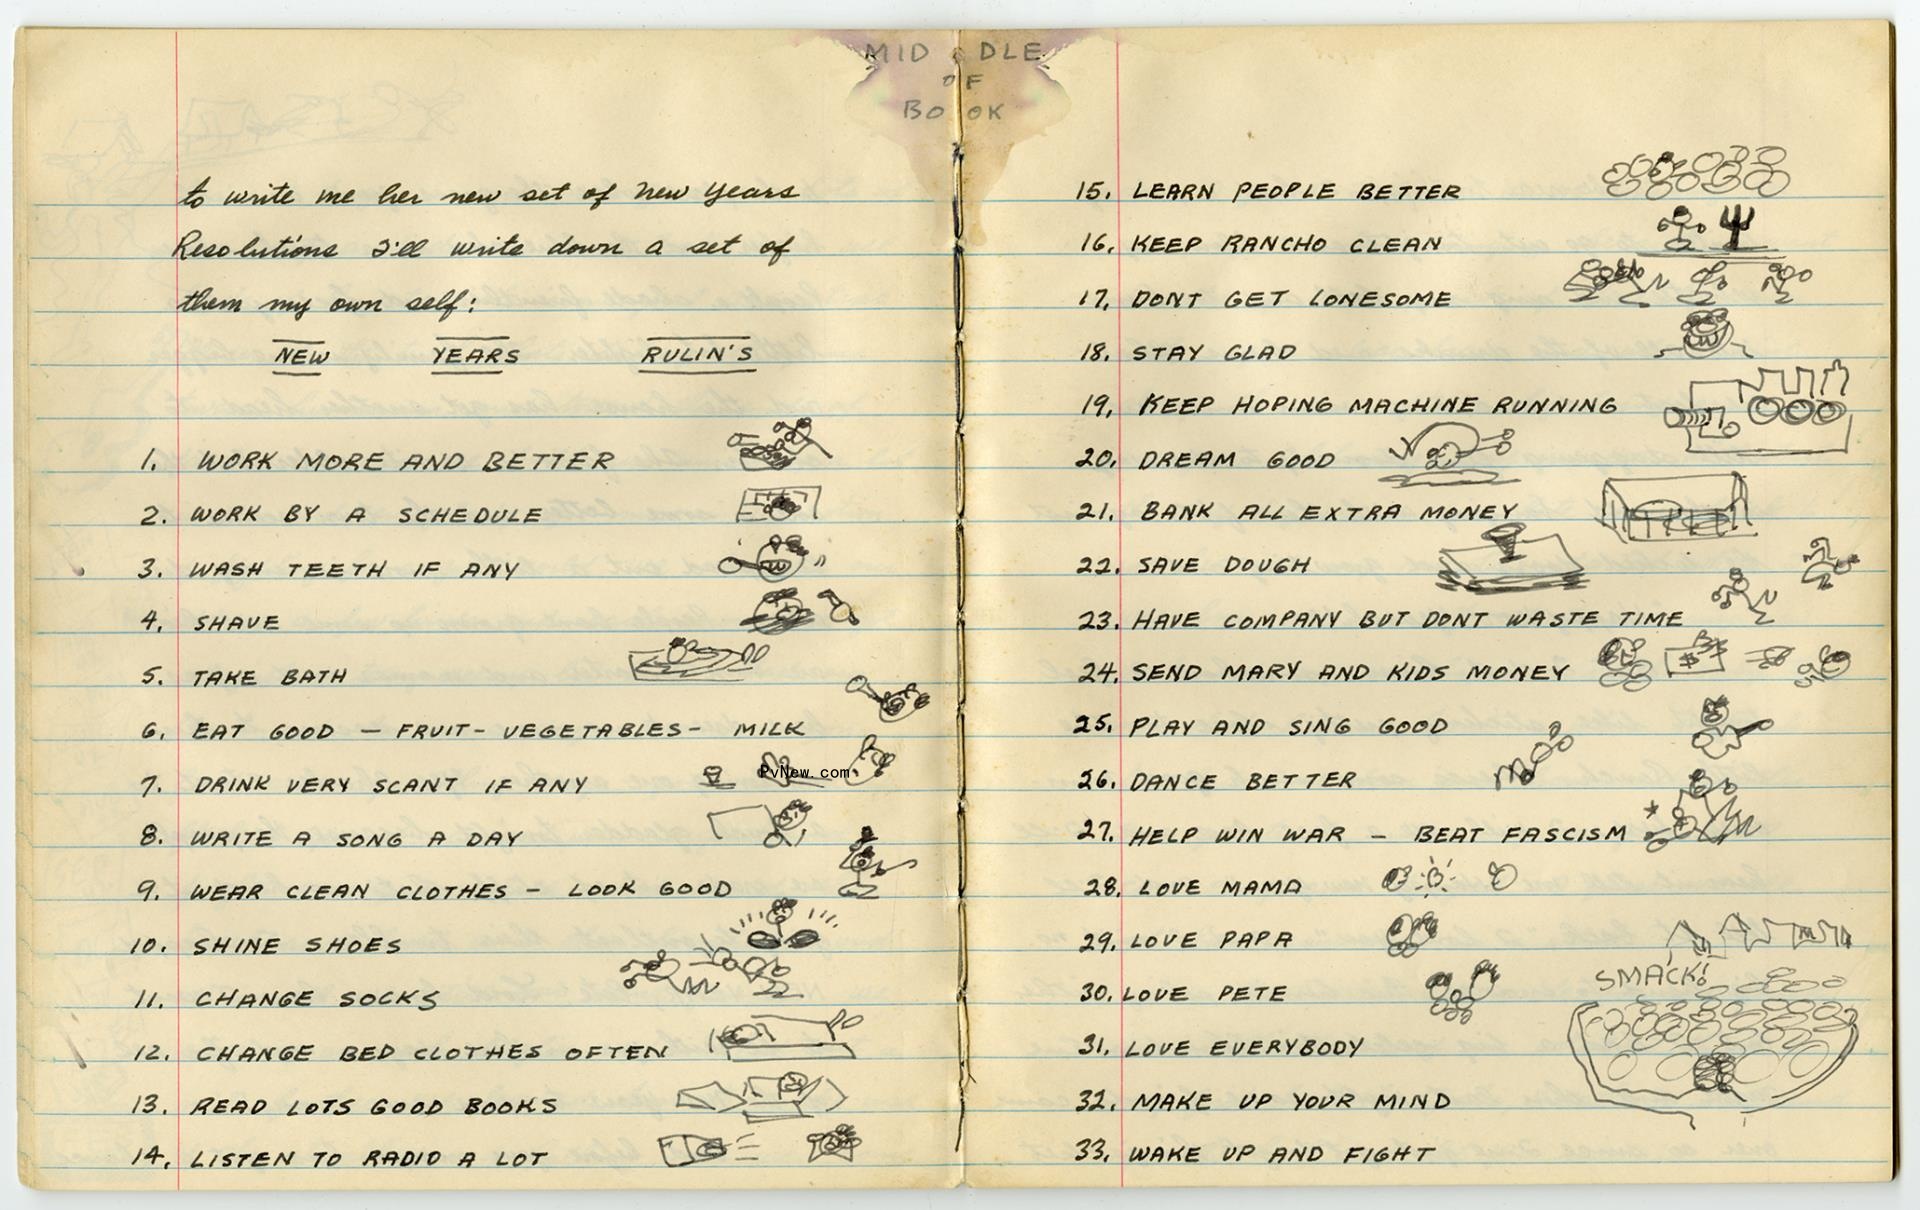 MIDDLE
OF
BOOK
to write me her new set of new years
Resolutions I'll write down a set of
them my own self:
NEW YEARS RULIN'S
1. WORK MORE AND BETTER
2. WORK BY A SCHEDULE
3. WASH TEETH IF ANY
4. SHAVE
5. TAKE BATH
6. EAT GOOD — FRUIT - VEGETABLES - MILK
7. DRINK VERY SCANT IF ANY
PvNew.com
8. WRITE A SONG A DAY
9. WEAR CLEAN CLOTHES — LOOK GOOD
10. SHINE SHOES
11. CHANGE SOCKS
12. CHANGE BED CLOTHES OFTEN
13. READ LOTS GOOD BOOKS
14. LISTEN TO RADIO A LOT
15. LEARN PEOPLE BETTER
16. KEEP RANCHO CLEAN
17. DONT GET LONESOME
18. STAY GLAD
19. KEEP HOPING MACHINE RUNNING
20. DREAM GOOD
21. BANK ALL EXTRA MONEY
22. SAVE DOUGH
23. HAVE COMPANY BUT DONT WASTE TIME
24. SEND MARY AND KIDS MONEY
$
25. PLAY AND SING GOOD
26. DANCE BETTER
27. HELP WIN WAR — BEAT FASCISM
28. LOVE MAMA
29. LOVE PAPA
SMACK!
30. LOVE PETE
31. LOVE EVERYBODY
32. MAKE UP YOUR MIND
33. WAKE UP AND FIGHT